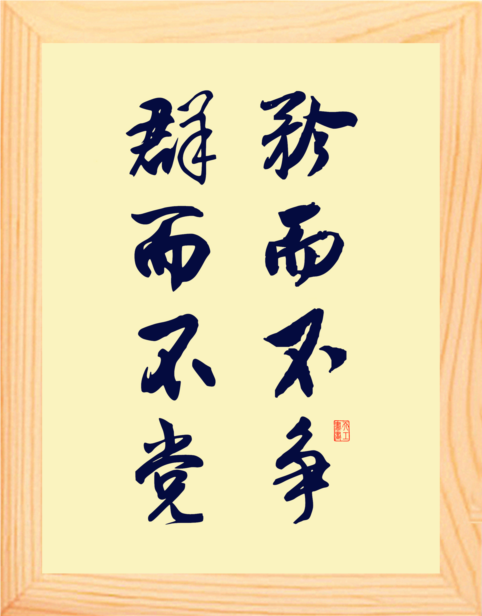 矜而不争
群而不党